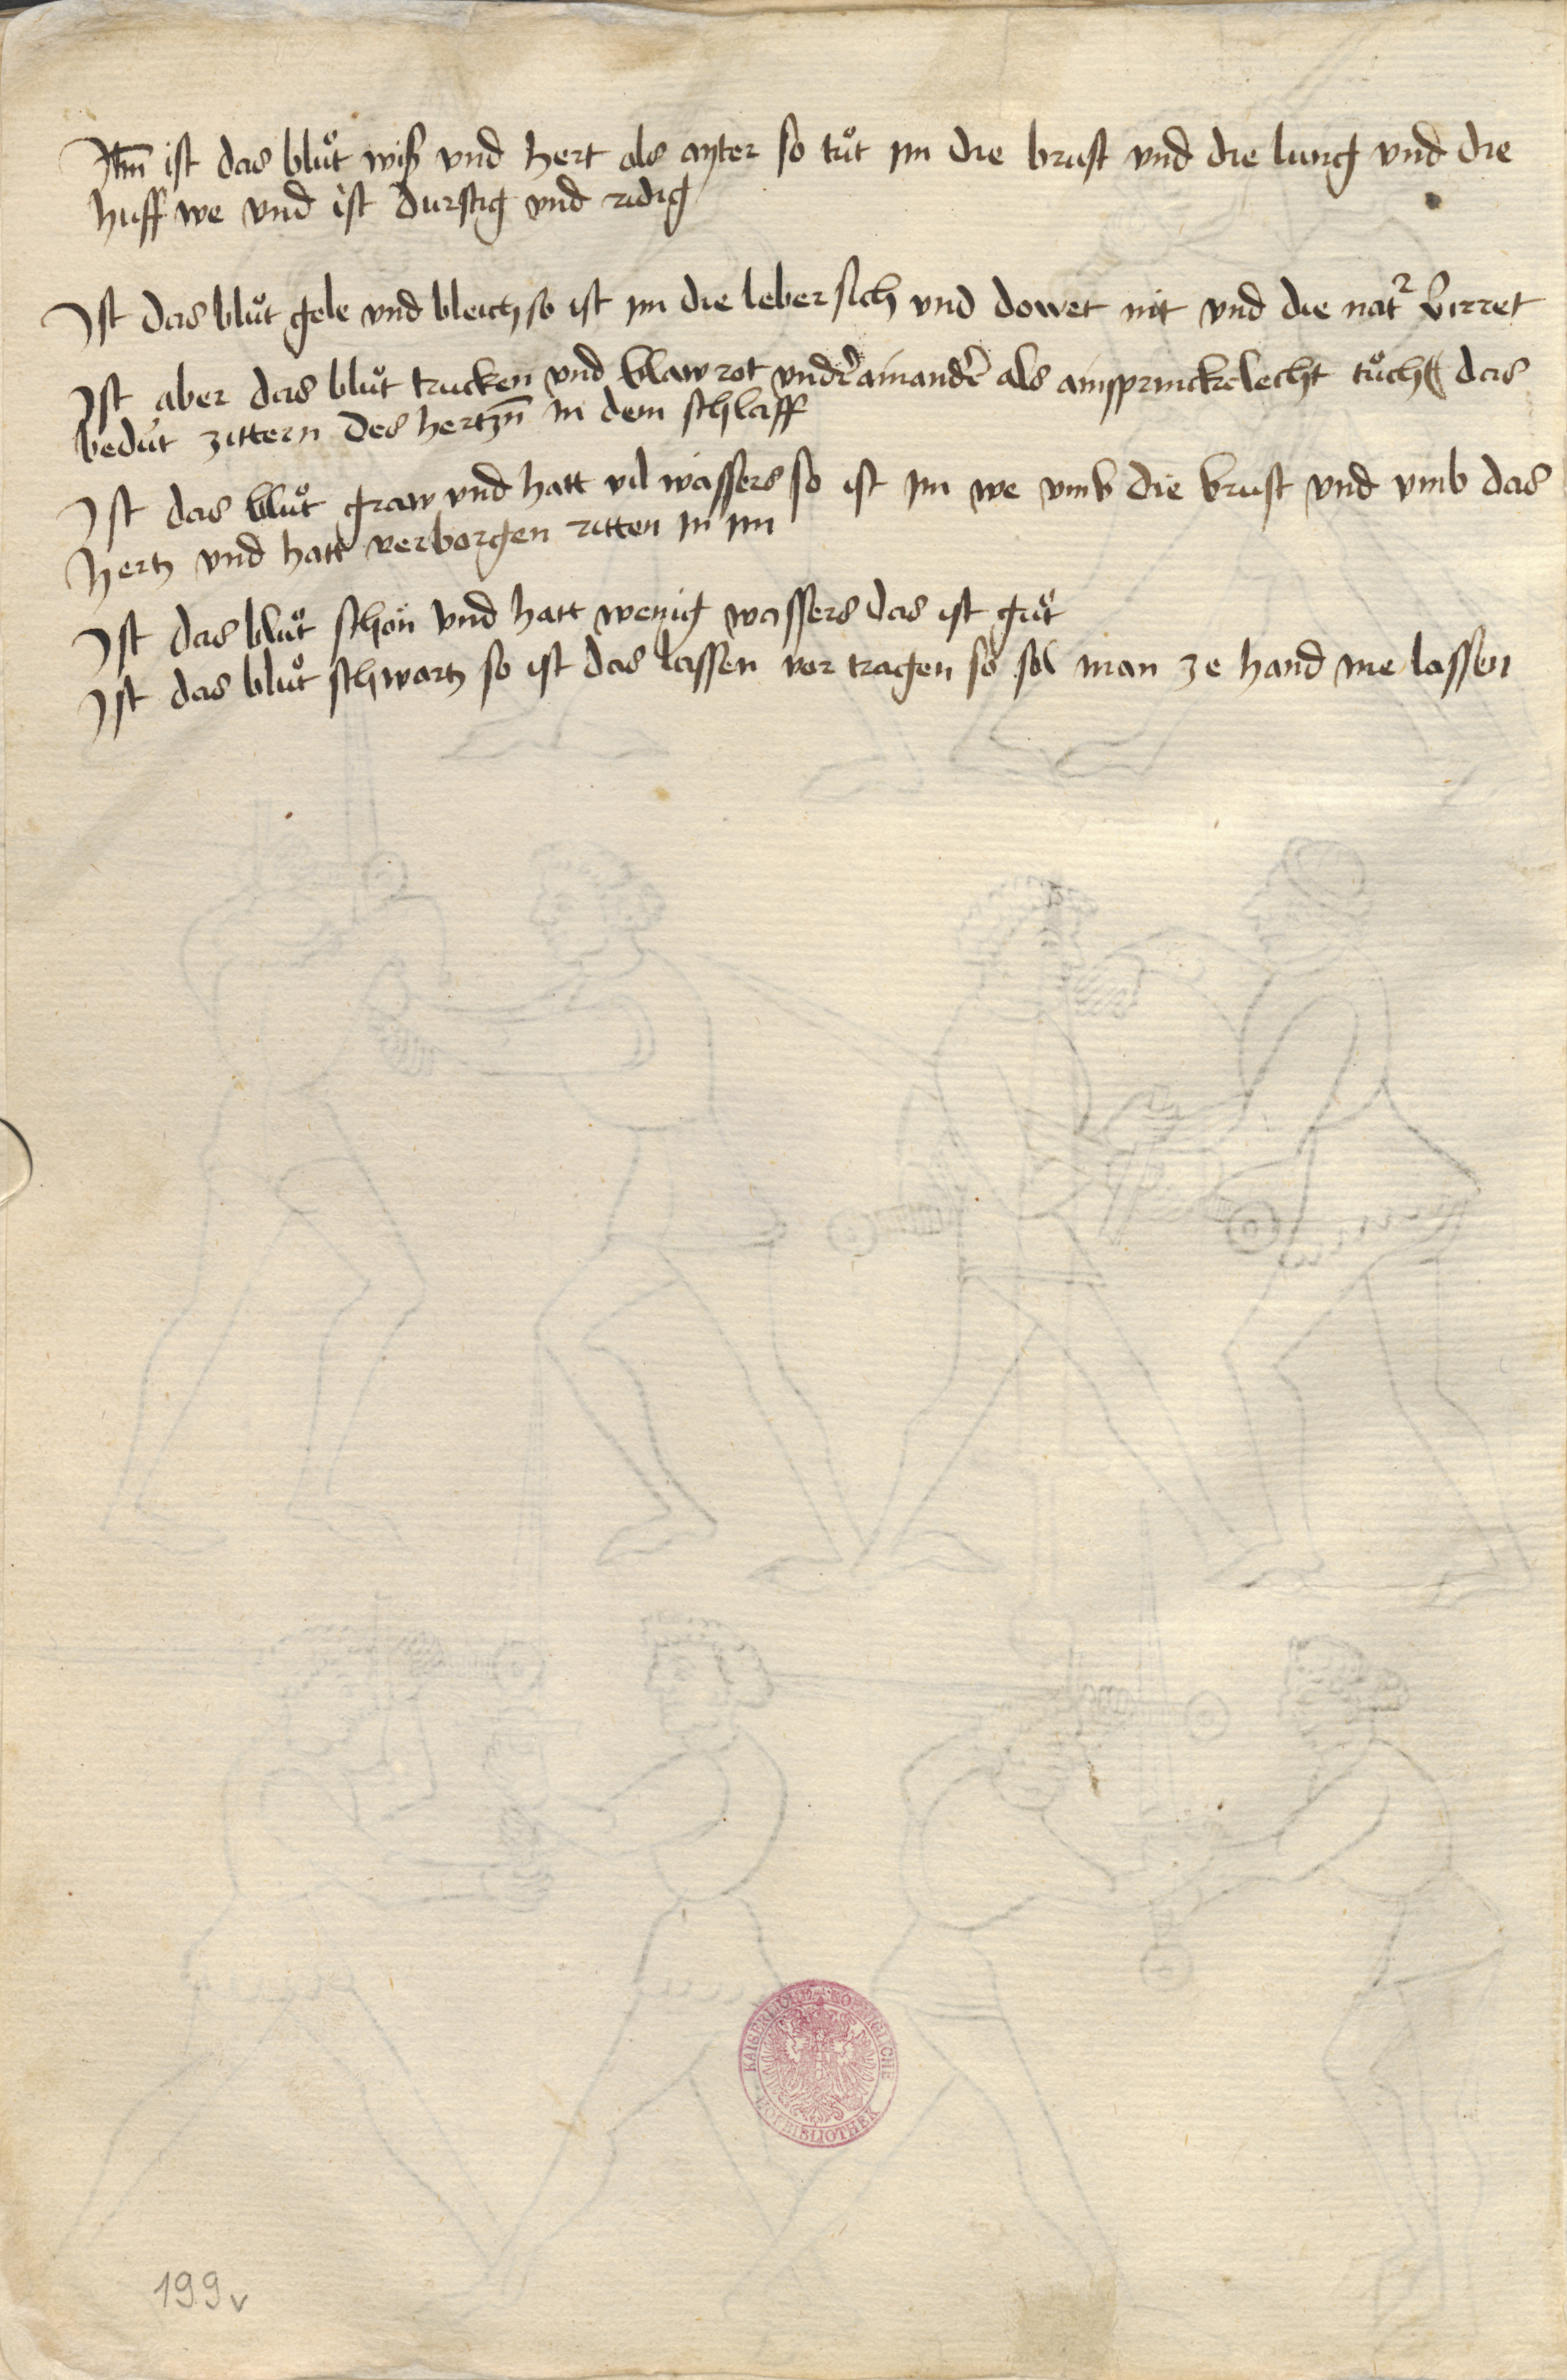 Itm̄ ist das blůt wiß vnd hert als ayter so tůt im die brust vnd die lung vnd die
huff we vnd ist durstig vnd ridig
Ist das blůt gele vnd bleich so ist im die leber sich vnd dowet nit vnd die nat᷑ virret
Ist aber das blůt trucken vnd blaw rot vndr̄ ainandr̄ als ain sprinckelecht tůch das
bedút zittern des hertzn̄ in dem schlaff
Ist das blůt graw vnd hatt vil wassers so ist im we vmb die brust vnd vmb das
hertz vnd hatt verborgen ritten in im
Ist das blůt schön vnd hatt wenig wassers das ist gůt
Ist das blůt schwartz so ist das lassen ver tragen so sol man ze hand me lassen
KAISERLICHE KOENIGLICHE
HOFBIBLIOTHEK
199v